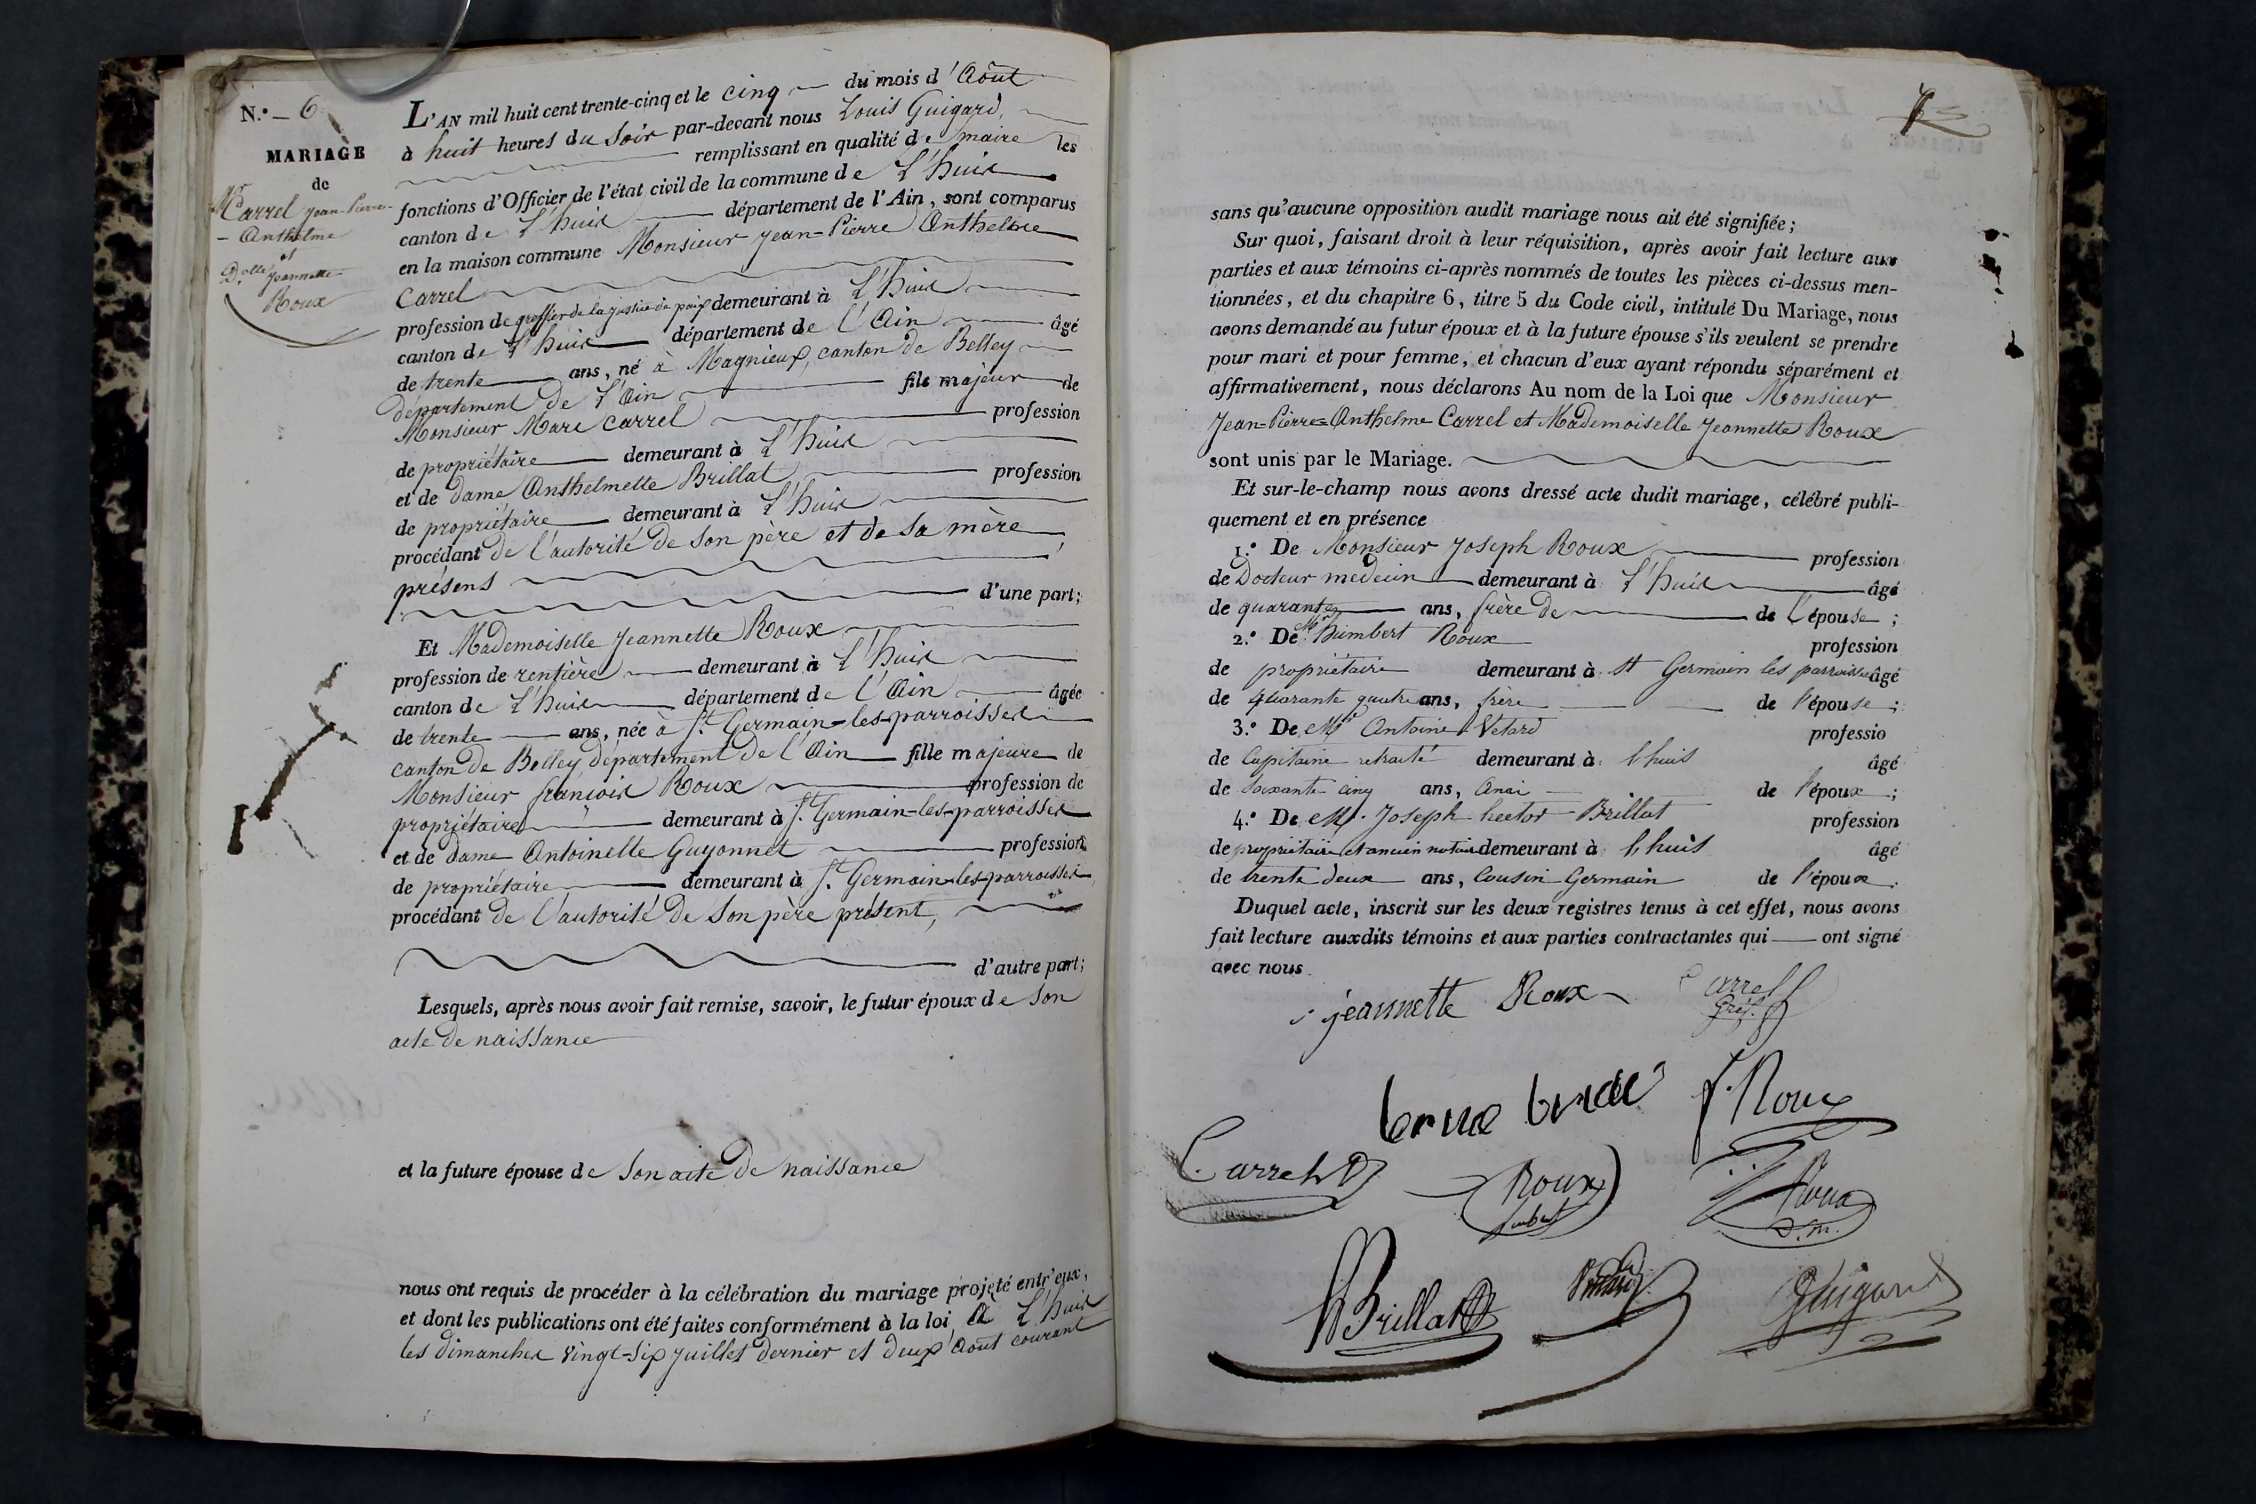 N.º 6
MARIAGE
de
Mr Carrel Jean-Pierre-
- Anthelme
et
D.elle Jeannette
Roux
L'AN mil huit cent trente-cinq et le cinq du mois d'Août
à huit heures du Soir par-devant nous Louis Guigard,
remplissant en qualité de maire les
fonctions d'Officier de l'état civil de la commune de L'huis
canton de L'huis département de l'Ain, sont comparus
en la maison commune Monsieur Jean-Pierre Anthelme
Carrel
profession de greffier de la justice de paix demeurant à L'huis
canton de L'huis département de l'Ain âgé
de trente ans, né à Magnieux, canton de Belley
département de l'Ain fils majeur de
Monsieur Marc Carrel profession
de propriétaire demeurant à L'huis
et de dame Anthelmette Brillat profession
de propriétaire demeurant à L'huis
procédant de l'autorité de son père et de sa mère
présens
d'une part;
Et Mademoiselle Jeannette Roux
profession de rentière demeurant à L'huis
canton de L'huis département de l'Ain âgée
de trente ans, née à St. Germain-les-parroisses
canton de Belley département de l'Ain fille majeure de
Monsieur françois Roux profession de
propriétaire demeurant à St. Germain-les-parroisses
et de dame Antoinette Guyonnet profession
de propriétaire demeurant à St. Germain-les-parroisses
procédant de l'autorité de son père présent,
d'autre part;
Lesquels, après nous avoir fait remise, savoir, le futur époux de son
acte de naissance
et la future épouse de son acte de naissance
nous ont requis de procéder à la célébration du mariage projeté entr'eux,
et dont les publications ont été faites conformément à la loi, à L'huis
les dimanches vingt-six juillet dernier et deux Août courant
sans qu'aucune opposition audit mariage nous ait été signifiée;
Sur quoi, faisant droit à leur réquisition, après avoir fait lecture aux
parties et aux témoins ci-après nommés de toutes les pièces ci-dessus men-
tionnées, et du chapitre 6, titre 5 du Code civil, intitulé Du Mariage, nous
avons demandé au futur époux et à la future épouse s'ils veulent se prendre
pour mari et pour femme, et chacun d'eux ayant répondu séparément et
affirmativement, nous déclarons Au nom de la Loi que Monsieur
Jean-Pierre-Anthelme Carrel et Mademoiselle Jeannette Roux
sont unis par le Mariage.
Et sur-le-champ nous avons dressé acte dudit mariage, célébré publi-
quement et en présence
1.º De Monsieur Joseph Roux profession
de Docteur medecin demeurant à L'huis âgé
de quarante ans, frère de de l'épouse;
2.º De Mr humbert Roux profession
de propriétaire demeurant à St Germain les parroisses âgé
de quarante quatre ans, frère de l'épouse;
3.º De Mr Antoine Vetard professio
de Capitaine retraité demeurant à Lhuis âgé
de Soixante cinq ans, Ami de l'époux;
4.º De M. Joseph hector Brillat profession
de propriétaire et ancien notaire demeurant à Lhuis âgé
de trente deux ans, Cousin Germain de l'époux.
Duquel acte, inscrit sur les deux registres tenus à cet effet, nous avons
fait lecture auxdits témoins et aux parties contractantes qui ont signé
avec nous.
jeannette Roux Carrel
Gref.
f. Roux
Carrel Roux Roux
D. M.
HBrillat Guigard